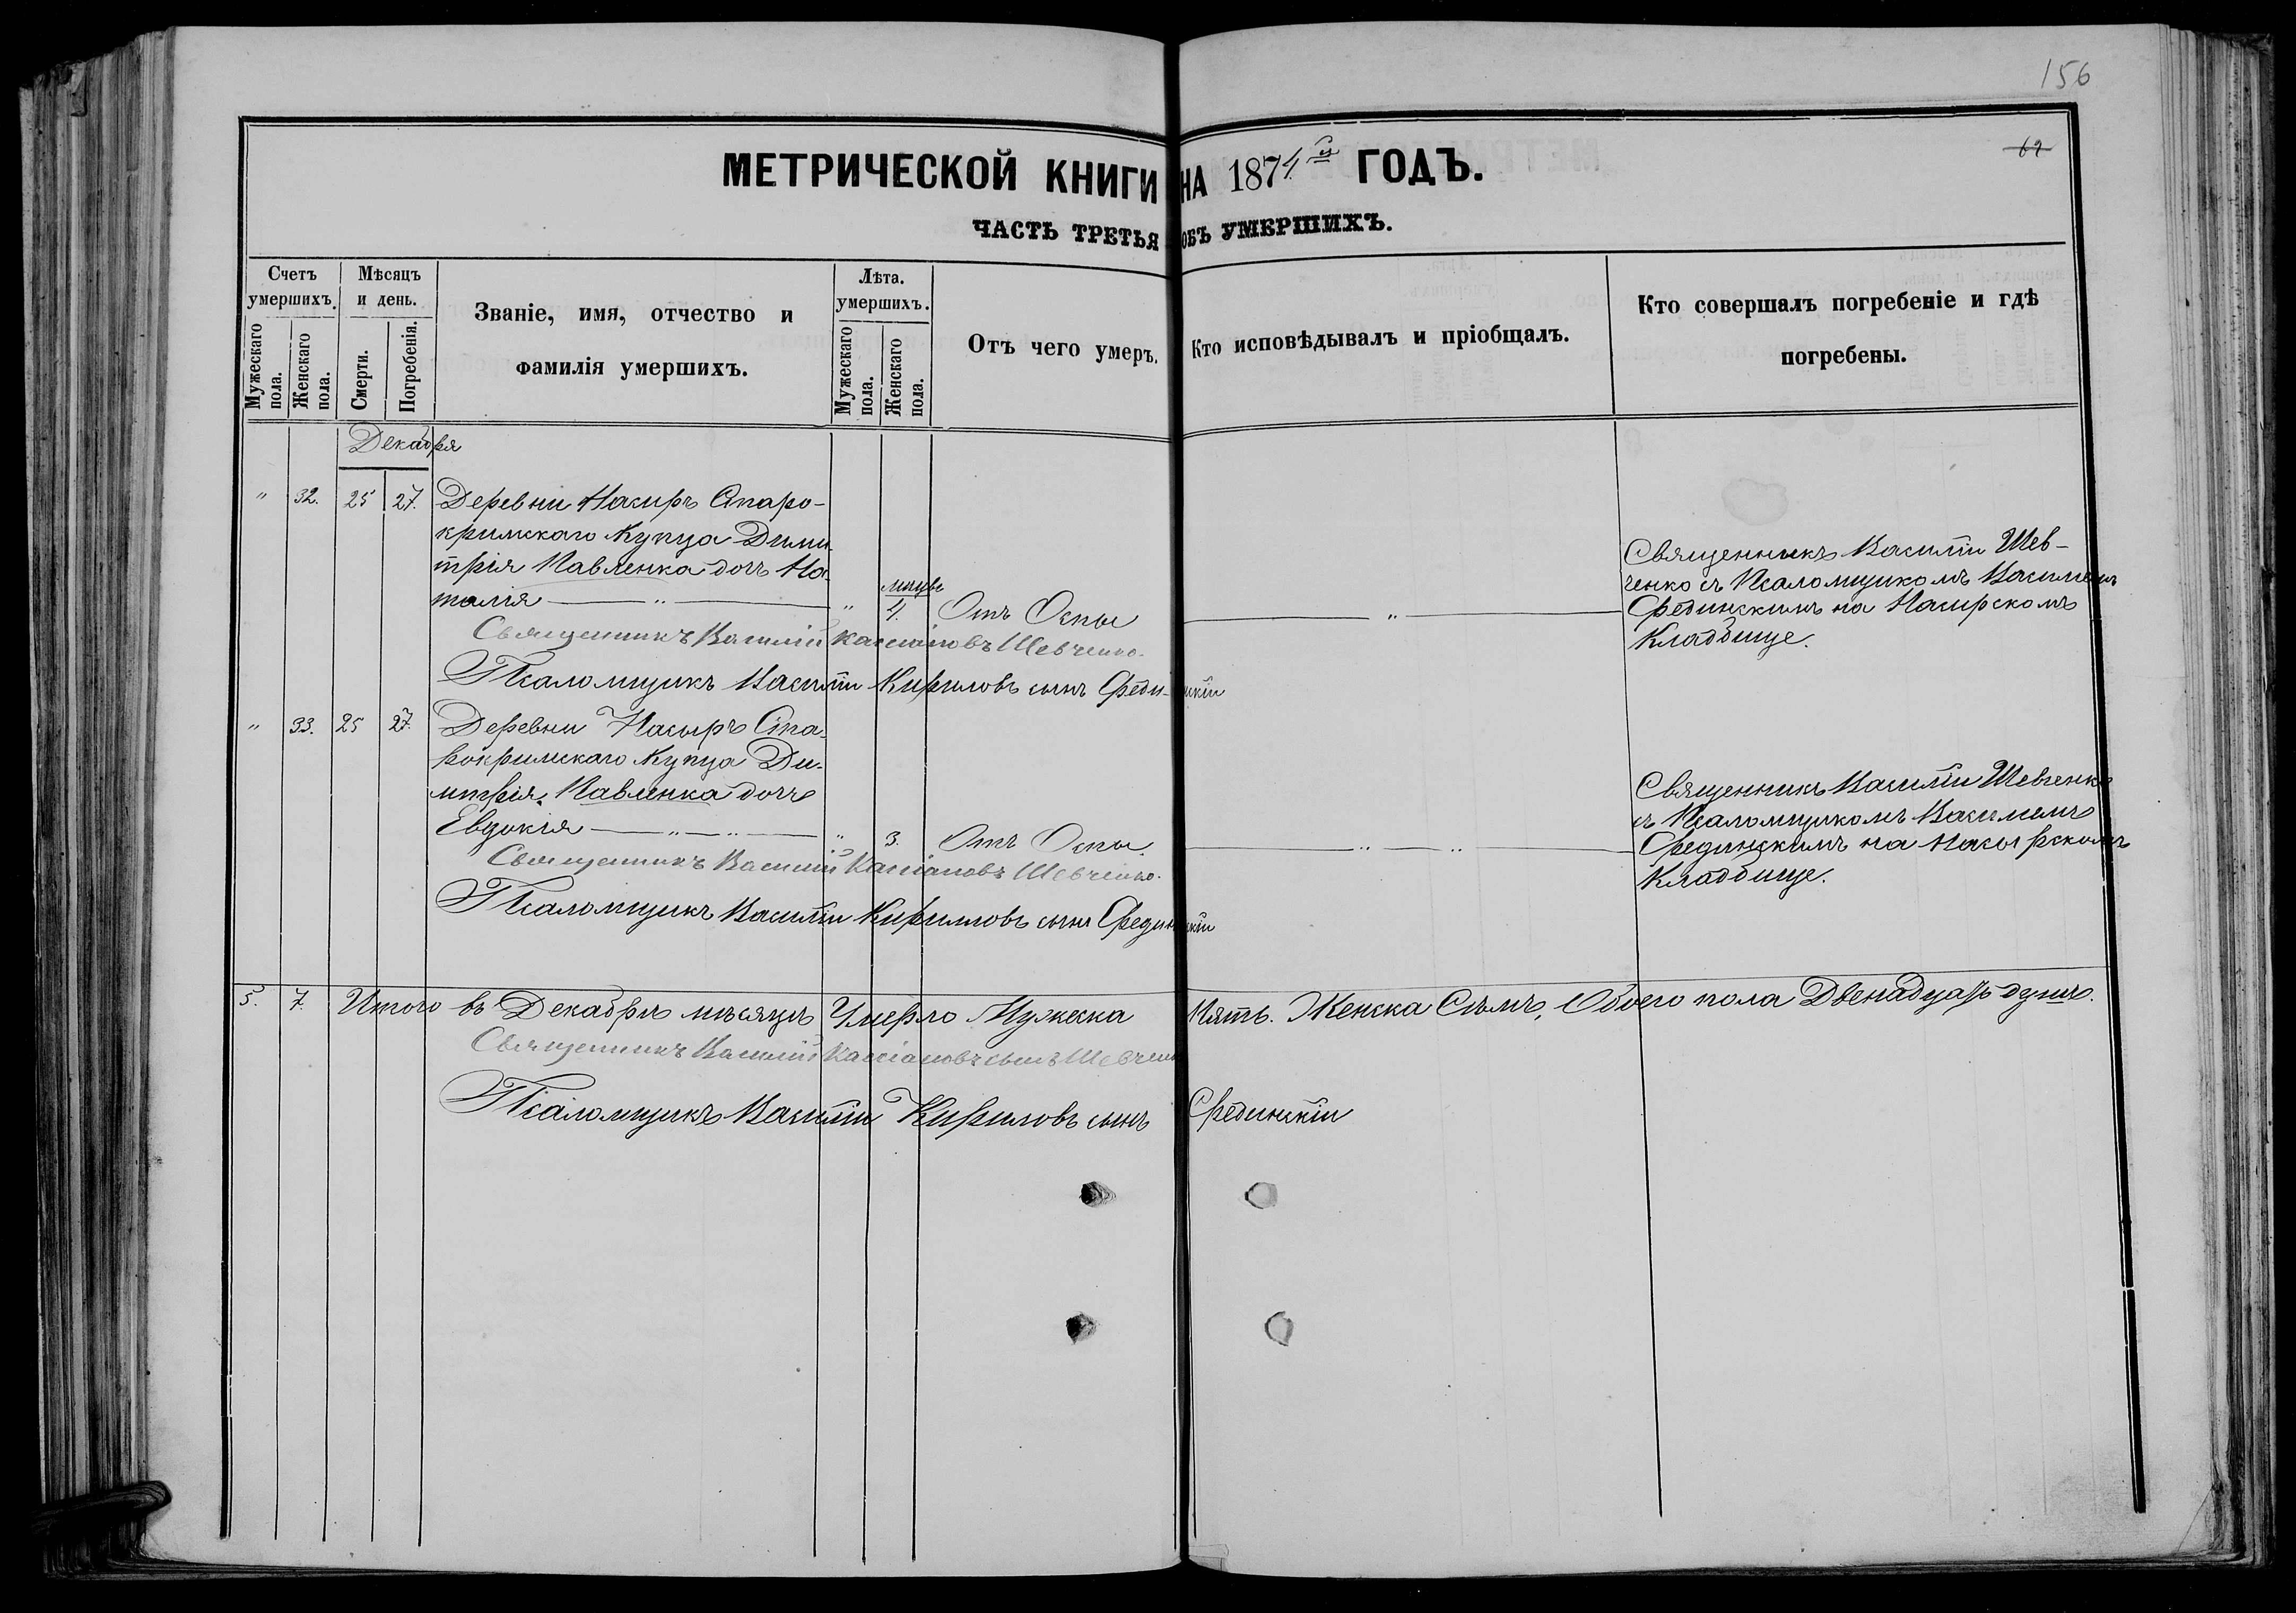 156
62
МЕТРИЧЕСКОЙ КНИГИ НА 1874й ГОДЪ.
ЧАСТЬ ТРЕТЬЯ ОБЪ УМЕРШИХЪ.
Счетъ умершихъ.
Мужескаго пола.
Женскаго пола.
Мѣсяцъ и день.
Смерти.
Погребенія.
Званіе, имя, отчество и
фамилія умершихъ.
Лѣта. умершихъ.
Мужескаго пола.
Женскаго пола.
Отъ чего умеръ.
Кто исповѣдывалъ и пріобщалъ.
Кто совершалъ погребеніе и гдѣ
погребены.
Декабря
" 32. 25 27. Деревни Насыръ Старо-
кримскаго Купца Дими
трія Павленка доч На
талія " " 4. Отъ Оспы "
Священникъ Василій Шев-
ченко съ Псаломщикомъ Василіемъ
Фединскимъ на Насирскомъ
Кладбище.
Священникъ Василій Кассіановъ Шевченко.
Псаломщикъ Василіи Кириловъ сынъ Фединскіи
" 33. 25 27. Деревни Насыръ Ста
рокримскаго Купца Ди-
митрія Павленка дочь
Евдокія " " " 3. Отъ Оспы. " "
Священникъ Василіи Шевченко
съ Псаломщикомъ Василіемъ
Фединскимъ на Насырскомъ
Кладбище.
Священникъ Василій Кассіановъ Шевченко.
Псаломщикъ Василіи Кирилловъ сынъ Фединскіи
5. 7. Итого въ Декабрѣ мѣсяцѣ Умерло Мужеска Пять. Женска Сѣмь, Обоего пола Двенадцать душъ.
Священникъ Василій Кассіановъ сынъ Шевченко
Псаломщикъ Василіи Кириловъ сынъ Фединскіи